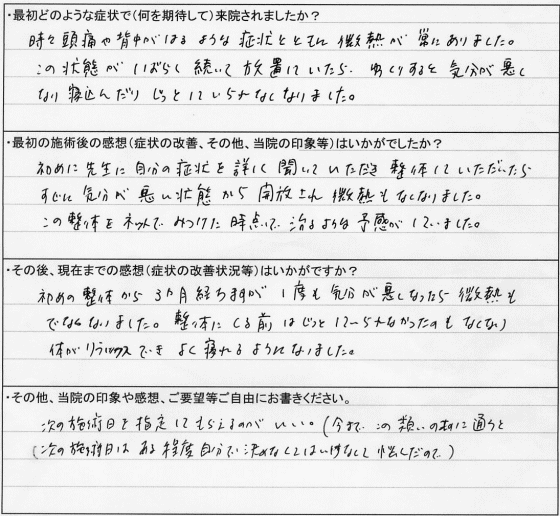 ・最初どのような症状で(何を期待して)来院されましたか?
時々頭痛や背中がはるような症状とともに微熱が常にありました。
この状態がしばらく続いて放置していたら、ゆっくりすると気分が悪く
なり寝込んだりじっとしていられなくなりました。
・最初の施術後の感想(症状の改善、その他、当院の印象等)はいかがでしたか?
初めに先生に自分の症状を詳しく聞いていただき整体していただいたら
すぐに気分が悪い状態から開放され微熱もなくなりました。
この整体をネットでみつけた時点で治るような予感がしていました。
・その後、現在までの感想(症状の改善状況等)はいかがですか?
初めの整体から3ヵ月経ちますが1度も気分が悪くなったら微熱も
でなくなりました。整体にくる前はじっとしていられなかったのもなくなり
体がリラックスでき よく寝れるようになりました。
・その他、当院の印象や感想、ご要望等ご自由にお書きください。
次の施術日を指定してもらえるのがいい。(今まで、この類いの物に通うと
次の施術日は ある程度自分で決めなくてはいけなくて悩んだので)